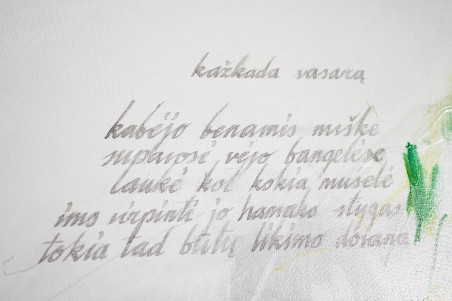 kažkada vasarą
kabėjo benamis miške
supavosi vėjo bangelėse
laukė kol kokia muselė
ims virpinti jo hamako stygas
tokia tad būtų likimo dovana